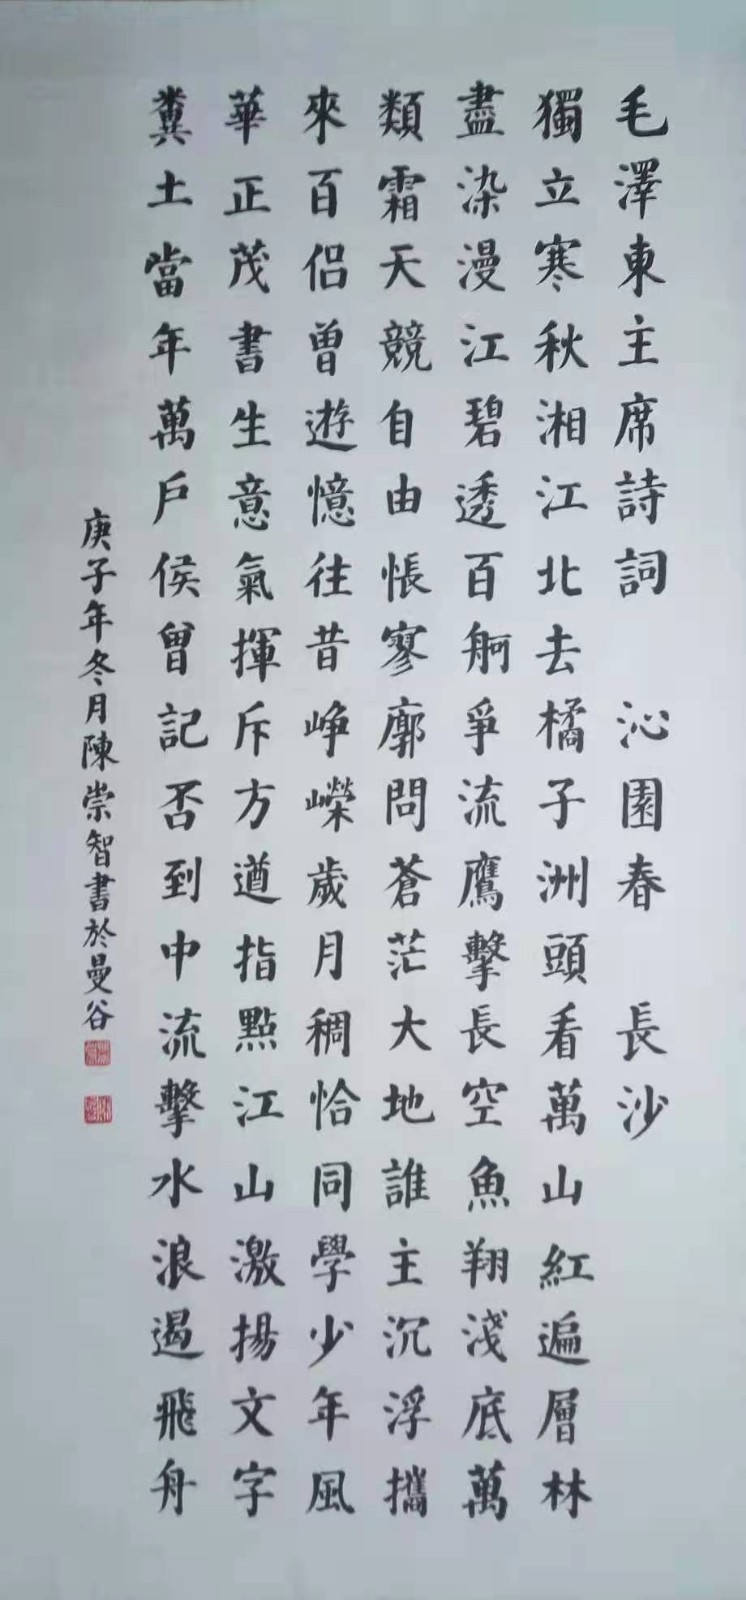 毛澤東主席詩詞 沁園春 長沙
獨立寒秋湘江北去橘子洲頭看萬山紅遍層林
盡染漫江碧透百舸爭流鷹擊長空魚翔淺底萬
類霜天競自由悵寥廓問蒼茫大地誰主沉浮攜
來百侶曾遊憶往昔崢嶸歲月稠恰同學少年風
華正茂書生意氣揮斥方遒指點江山激揚文字
糞土當年萬戶侯曾記否到中流擊水浪遏飛舟
庚子年冬月陳崇智書於曼谷